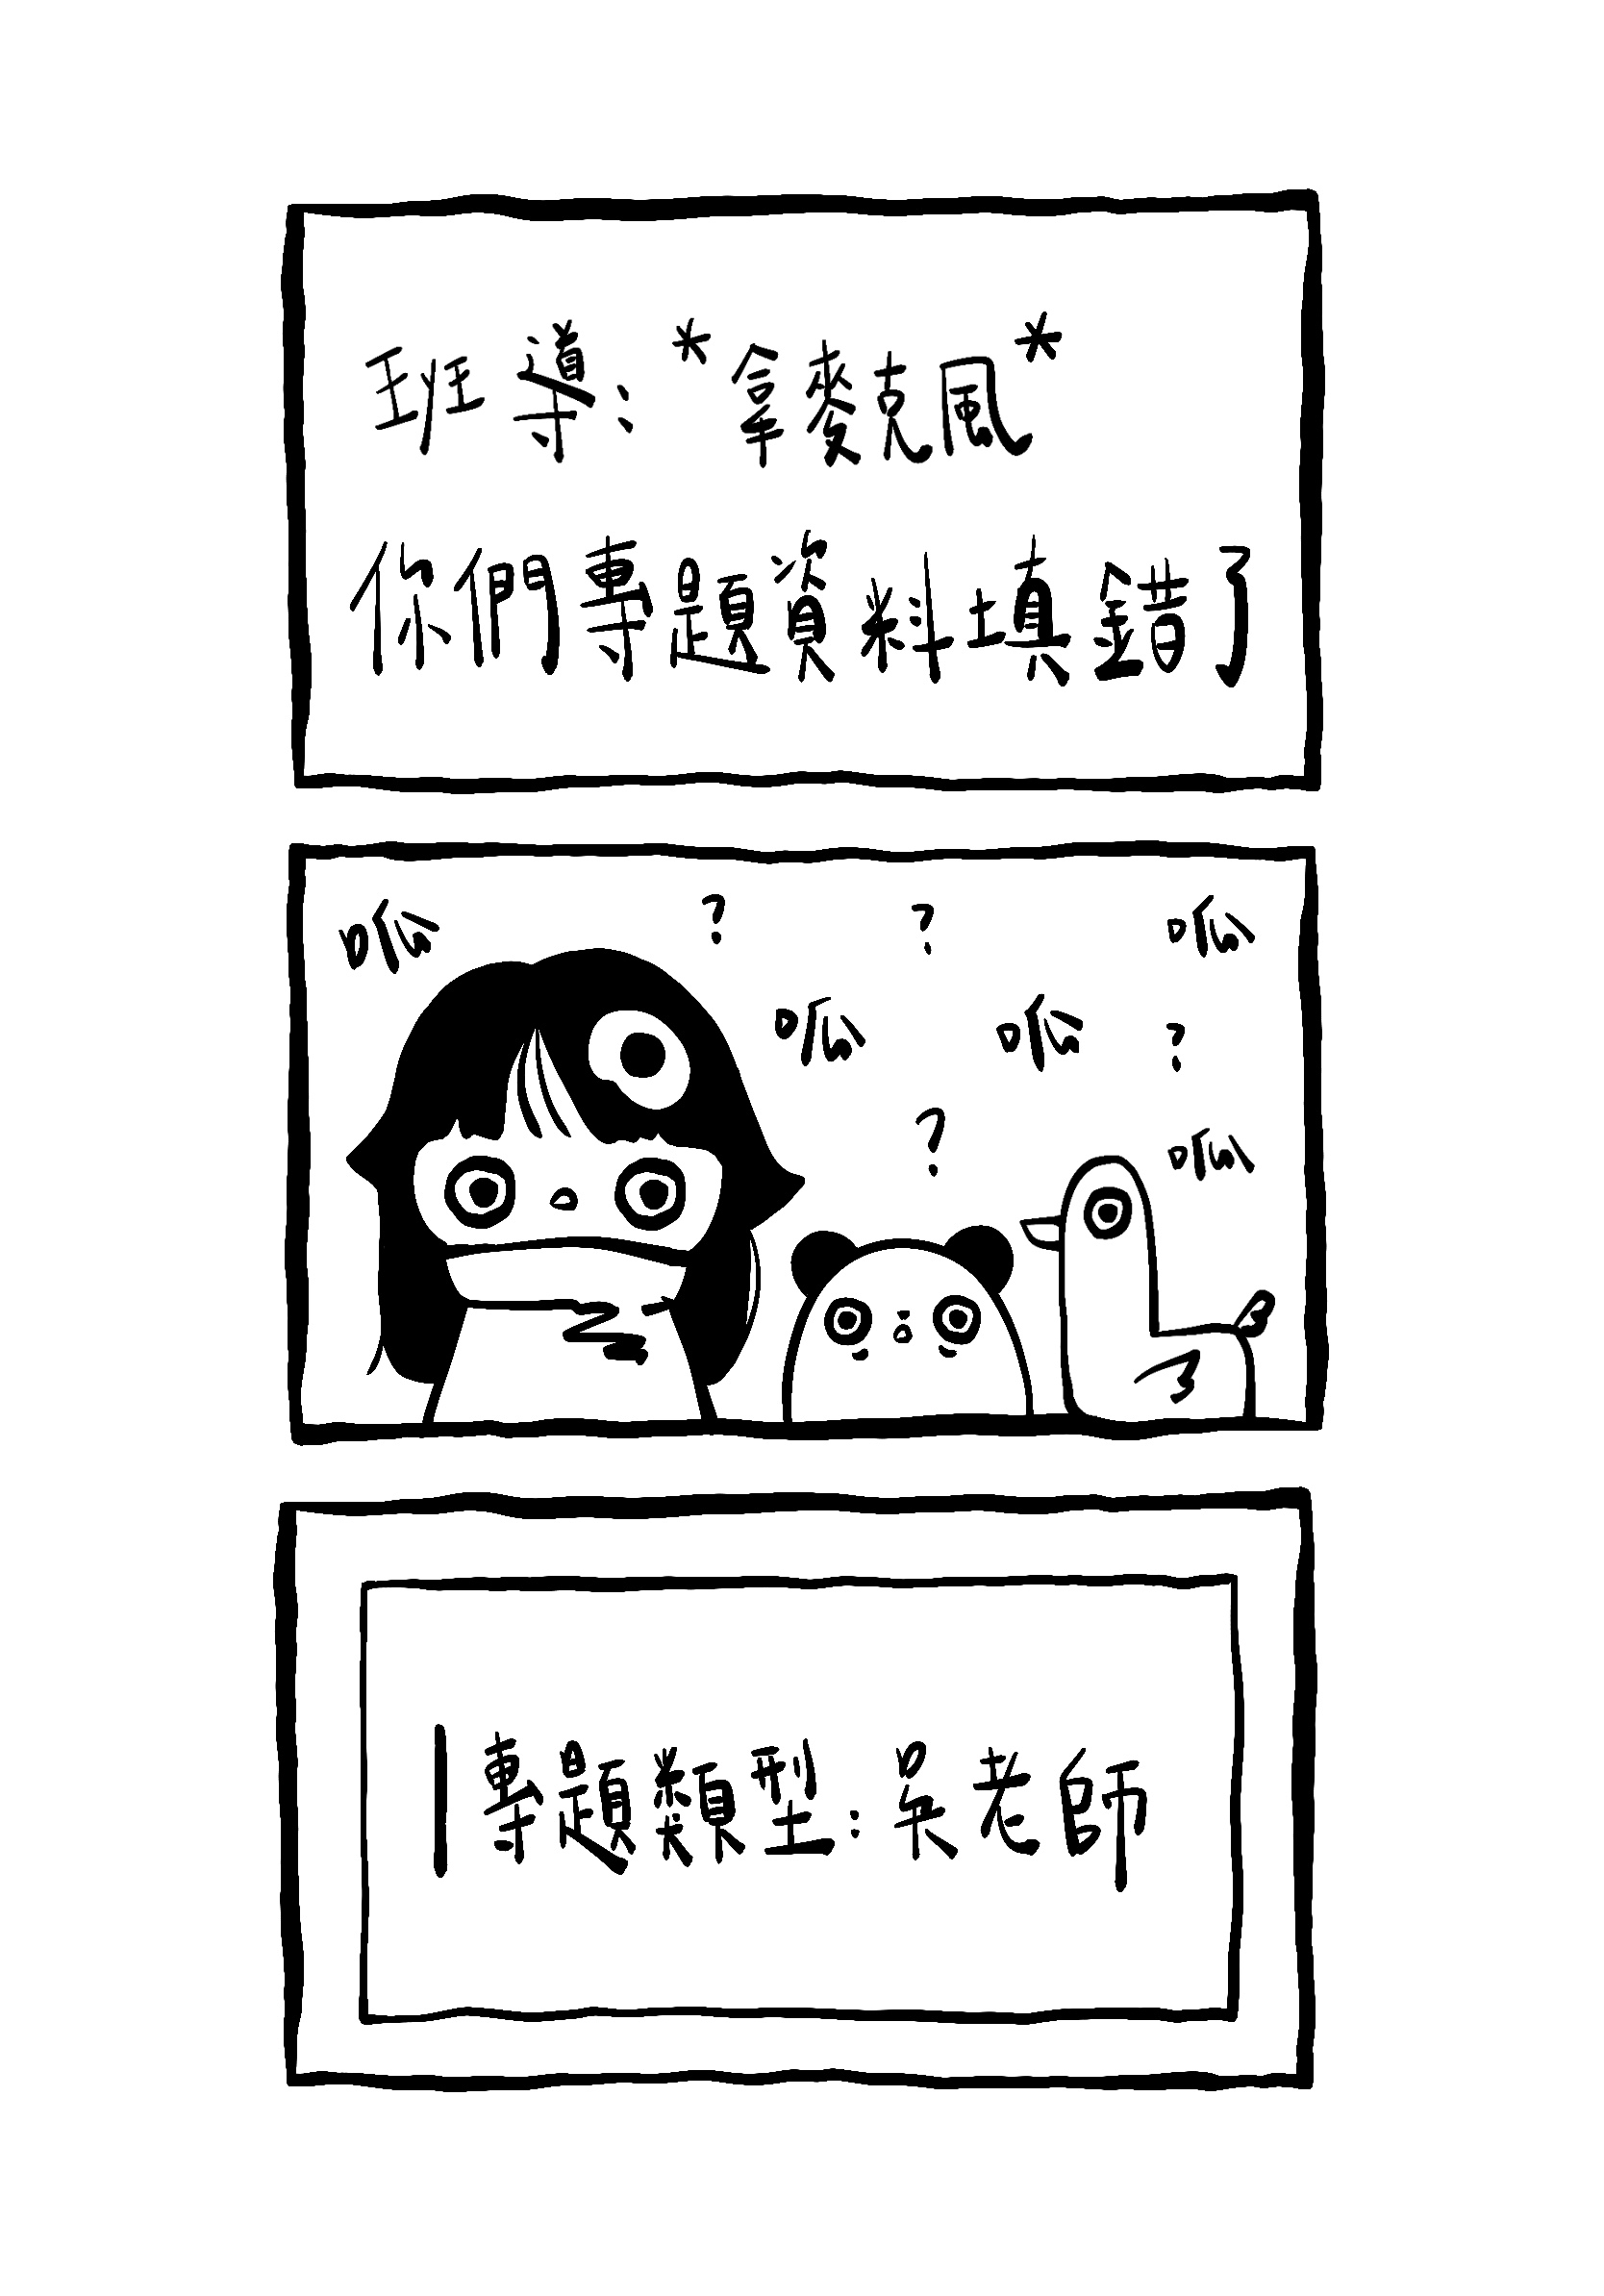 班導：*拿麥克風*
你們專題資料填錯了
呱 ? ? 呱
呱 呱 ?
? 呱
專題類型：吳老師